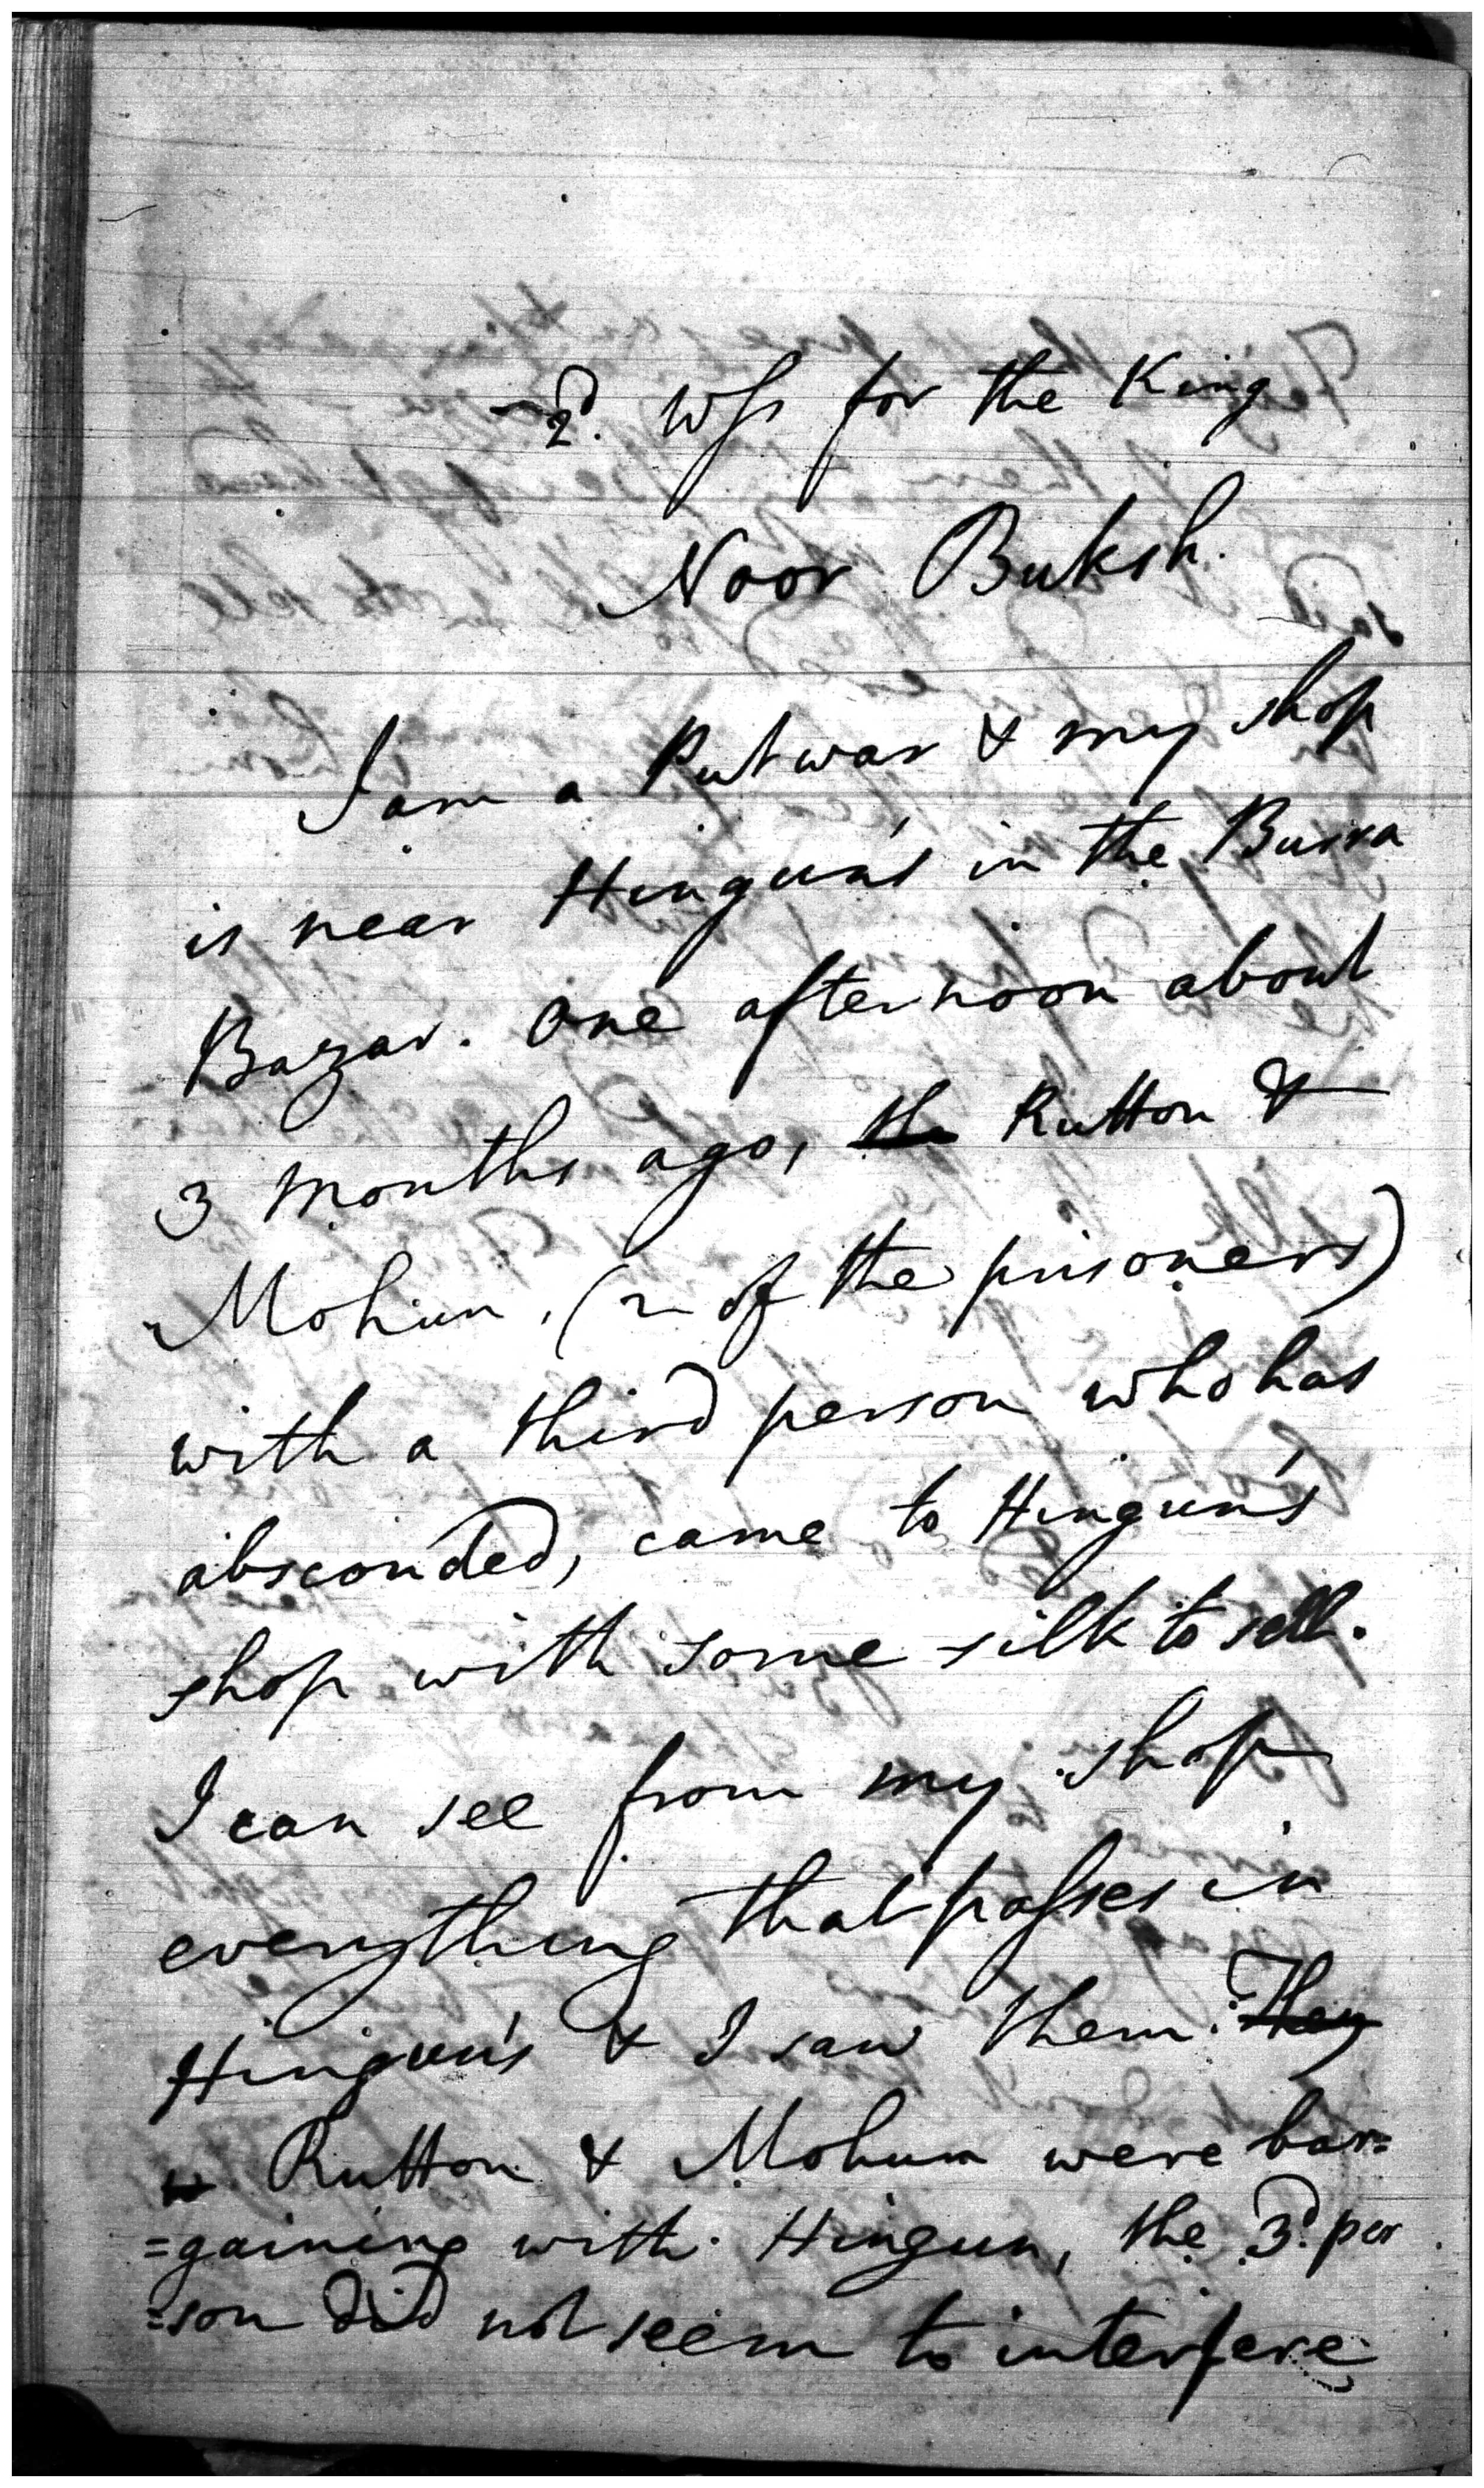 2d. Wss for the King
Noor Buksh.
I am a Putwar & my shop
is near Hingun's in the Burra
Bazar. One afternoon about
3 months ago, the Rutton &
Mohun, (2 of the prisoners)
with a third person who has
absconded, came to Hingun's
shop with some silk to sell.
I can see from my shop
everything that passes in
Hingun's & I saw them. They
w Rutton & Mohun were bar=
=gaining with Hingun, the 3d. per
=son did not seem to interfere